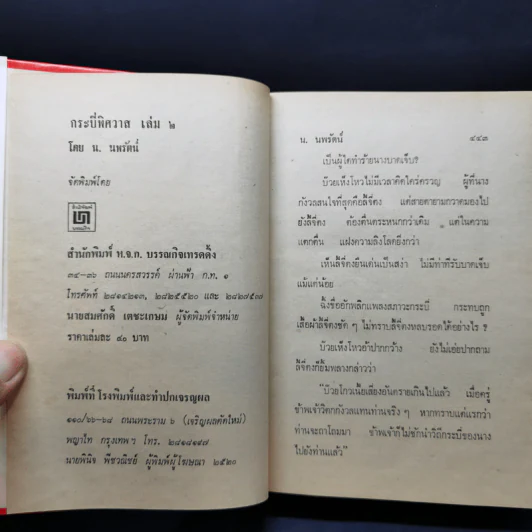 กระบี่พิศวาส เล่ม ๒
โดย น. นพรัตน์
จัดพิมพ์โดย
สำนักพิมพ์ ห.จ.ก. บรรณกิจเทรดดิ้ง
๓๔-๓๖ ถนนนครสวรรค์ ผ่านฟ้า ก.ท. ๑
โทรศัพท์ ๒๘๑๔๒๑๓, ๒๘๒๕๕๒๐ และ ๒๘๒๗๕๓๗
นายสมศักดิ์ เตชะเกษม ผู้จัดพิมพ์จำหน่าย
ราคาเล่มละ ๙๐ บาท
พิมพ์ที่ โรงพิมพ์และทำปกเจริญผล
๑๑๐/๖๖-๖๘ ถนนพระราม ๖ (เจริญผลตัดใหม่)
พญาไท กรุงเทพฯ โทร. ๒๘๑๘๑๙๗
นายพินิจ พืชวณิชย์ ผู้พิมพ์ผู้โฆษณา ๒๕๒๐
น. นพรัตน์
๔๔๓
เป็นผู้ใดทำร้ายนางบาดเจ็บ?
บ้วยเห็งโหวไม่มีเวลาคิดใคร่ครวญ ผู้ที่นาง
กังวลสนใจที่สุดคือลี้จี่ตง แต่สายตายามกวาดมองไป
ยังลี้จี่ตง ต้องตื่นตระหนกกว่าเดิม แต่ในความ
แตกตื่น แฝงความลิงโลดยิ่งกว่า
เห็นลี้จี่ตงยืนเด่นเป็นสง่า ไม่มีท่าทีรับบาดเจ็บ
แม้แต่น้อย
กระทบถูก
เสื้อผ้าลี้จี่ตงชัด ๆ ไม่ทราบลี้จี่ตงหลบรอดได้อย่างไร ?
บ้วยเห็งโหวอ้าปากกว้าง ยังไม่เอ่ยปากถาม
ลี้จี่ตงก็ยิ้มพลางกล่าวว่า
"บ้วยโกวเนี้ยเสี่ยงอันตรายเกินไปแล้ว เมื่อครู่
ข้าพเจ้าวิตกกังวลแทนท่านจริง ๆ หากทราบแต่แรกว่า
ท่านจะถาโถมมา ข้าพเจ้าก็ไม่ชักนำวิถีกระบี่ของนาง
ไปยังท่านแล้ว"